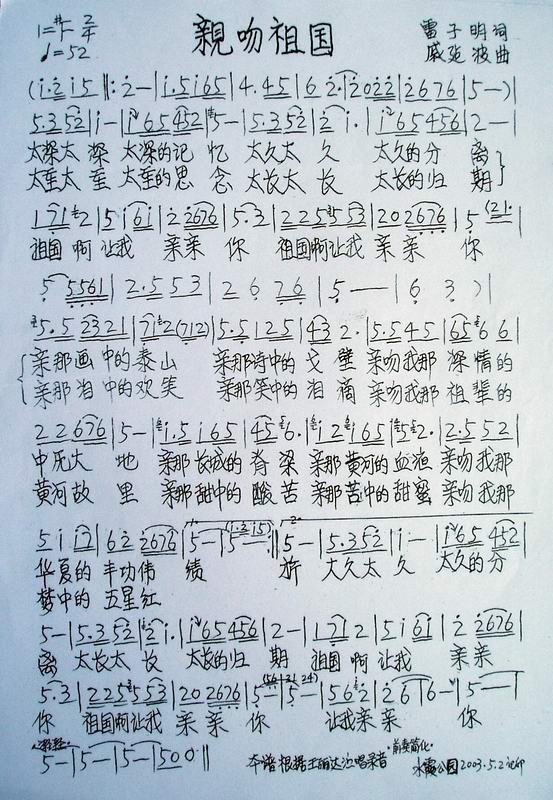 1=#F 2/4
♩=52
親吻祖国
雷子明 词
戚建波 曲
(i·2 i5 ‖: 2— | i·5 i65 | 4·45 | 6 2· | 2022 | 2676 | 5—) |
5·3 52 | i— | i65 452 | 5— | 5·3 52 | 2 i· | i65 456 | 2— |
太深太 深 太深的记 忆 太久太 久 太久的分 离
太重太 重 太重的思 念 太长太 长 太长的归 期
171 2 | 5 i6i | 2 2676 | 5·3 | 225 553 | 202 2676 | 5 (21·
祖国 啊 让我 亲亲 你 祖国啊让我 亲 亲 你
5 5561 | 2·553 | 2 6 76 | 5— — | 6 3 ) |
5·5 2321 | 71 2 (712) | 5·5 125 | 43 2· | 5·5 45 | 65 6 6 |
亲那画 中的泰山 亲那诗中的 戈 壁 亲吻我那 深 情的
亲那泪 中的欢笑 亲那笑中的 泪 滴 亲吻我那 祖 辈的
22 676 | 5— | i·5 165 | 45 6· | i 2 165 | 5 2· | 2·5 52 |
中原大 地 亲那 长城的 脊 梁 亲那 黄河的 血液 亲吻 我那
黄河故 里 亲那 甜中的 酸 苦 亲那 苦中的 甜蜜 亲吻 我那
5 i i7 | 62 2676 | 5— | 5— (i·2 i5) :‖ 5— | 5·3 52 | i— | i65 452 |
华夏的 丰功伟 绩 旗 太久太 久 太久的分
梦中的 五星红
5— | 5·3 52 | 2 i· | i65 456 | 2— | 171 2 | 5 i6i | 2 2676 |
离 太长太 长 太长的归 期 祖国 啊 让我 亲亲
5·3 | 225 553 | 202 2676 | 5— | 5— | 562 | 26 | 6— | 5— |
你 祖国啊让我 亲 亲 你 让我亲亲 你
5— | 5— | 5— | 500 ‖
本谱根据王丽达演唱录音
·前奏简化·
水霞公园2003.5.2记印